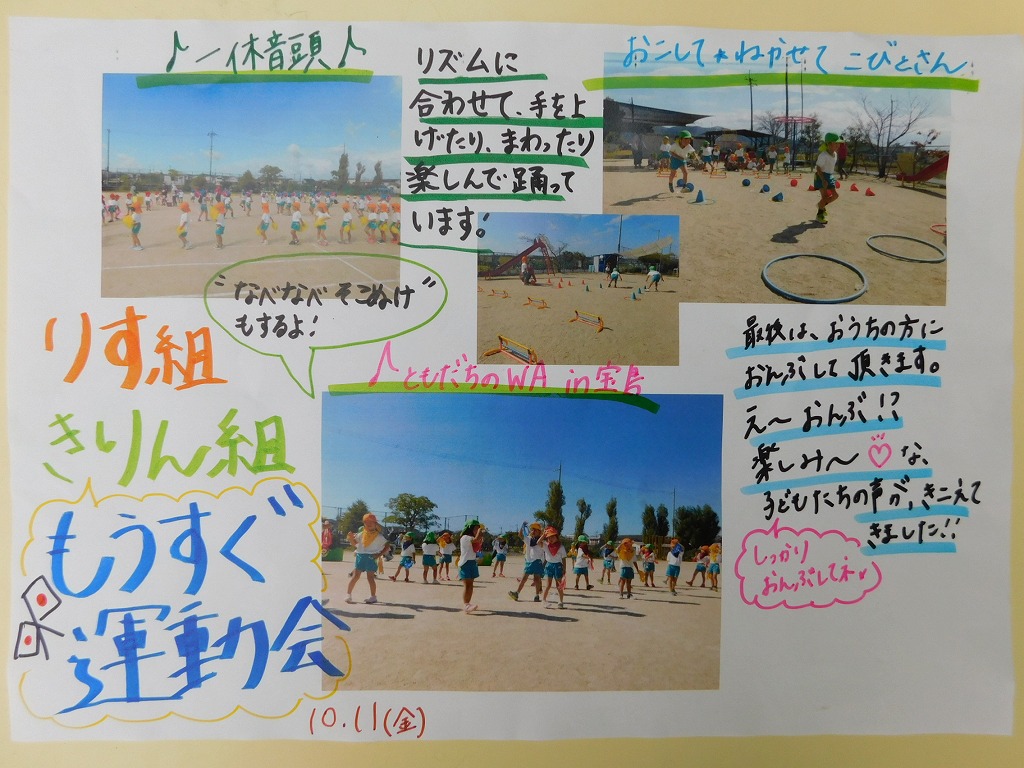 ♪一休音頭♪
リズムに
合わせて、手を上
げたり、まわったり
楽しんで踊って
います!
おこして★ねかせて こびとさん
"なべなべ そこぬけ"
もするよ!
りす組
きりん組
もうすぐ
運動会
♪ともだちのWA in宝島
最後は、おうちの方に
おんぶして頂きます。
え〜おんぶ!?
楽しみ〜♡な、
子どもたちの声が、きこえて
きました!!
しっかり
おんぶしてネ♡
10.11(金)